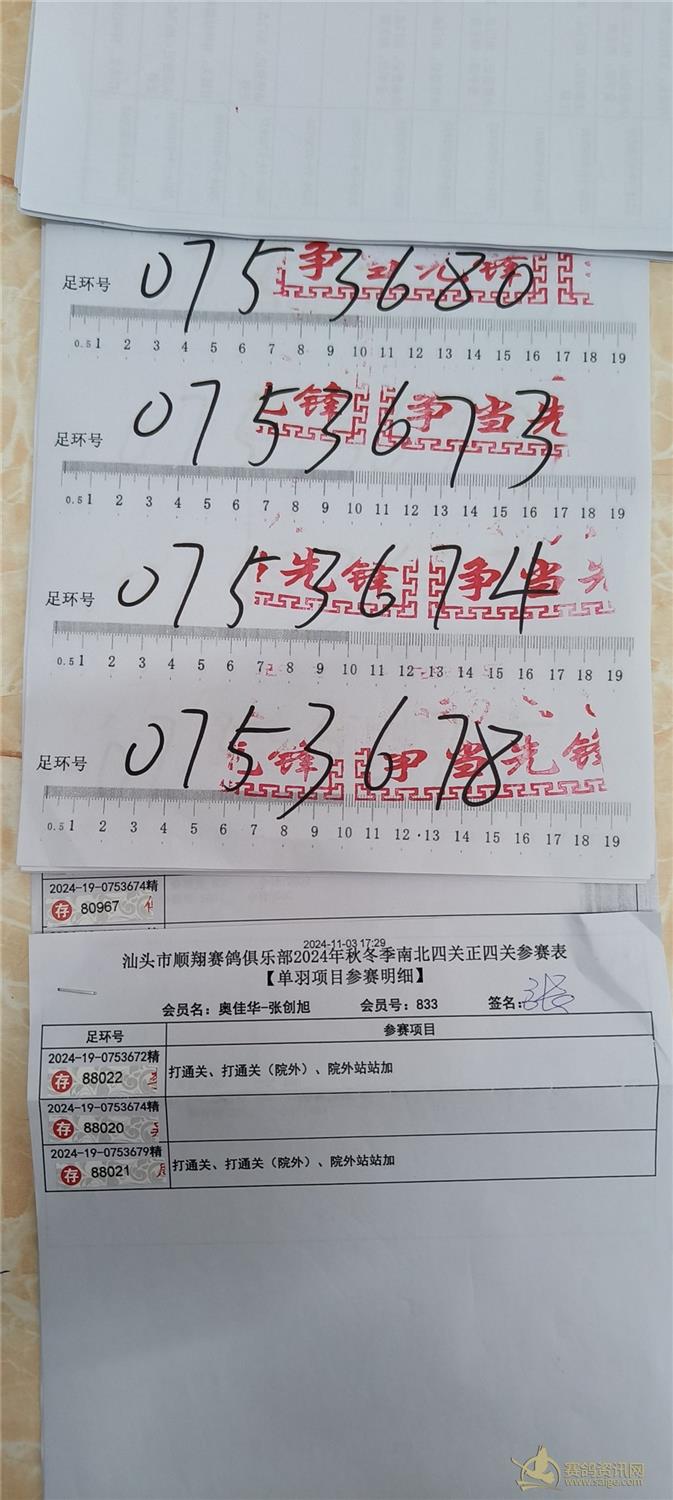 争当先锋
足环号 0753680
0.5 1 2 3 4 5 6 7 8 9 10 11 12 13 14 15 16 17 18 19
先锋 争当先
足环号 0753673
0.5 1 2 3 4 5 6 7 8 9 10 11 12 13 14 15 16 17 18 19
先锋 争当先
足环号 0753674
0.5 1 2 3 4 5 6 7 8 9 10 11 12 13 14 15 16 17 18 19
先锋 争当先锋
足环号 0753678
0.5 1 2 3 4 5 6 7 8 9 10 11 12 13 14 15 16 17 18 19
2024-19-0753674精
存 80967
2024-11-03 17:29
汕头市顺翔赛鸽俱乐部2024年秋冬季南北四关正四关参赛表
【单羽项目参赛明细】
会员名：奥佳华-张创旭 会员号：833 签名：
足环号 参赛项目
2024-19-0753672精
存 88022
打通关、打通关（院外）、院外站站加
2024-19-0753674精
存 88020
2024-19-0753679精
存 88021
打通关、打通关（院外）、院外站站加
赛鸽资讯网
www.saige.com